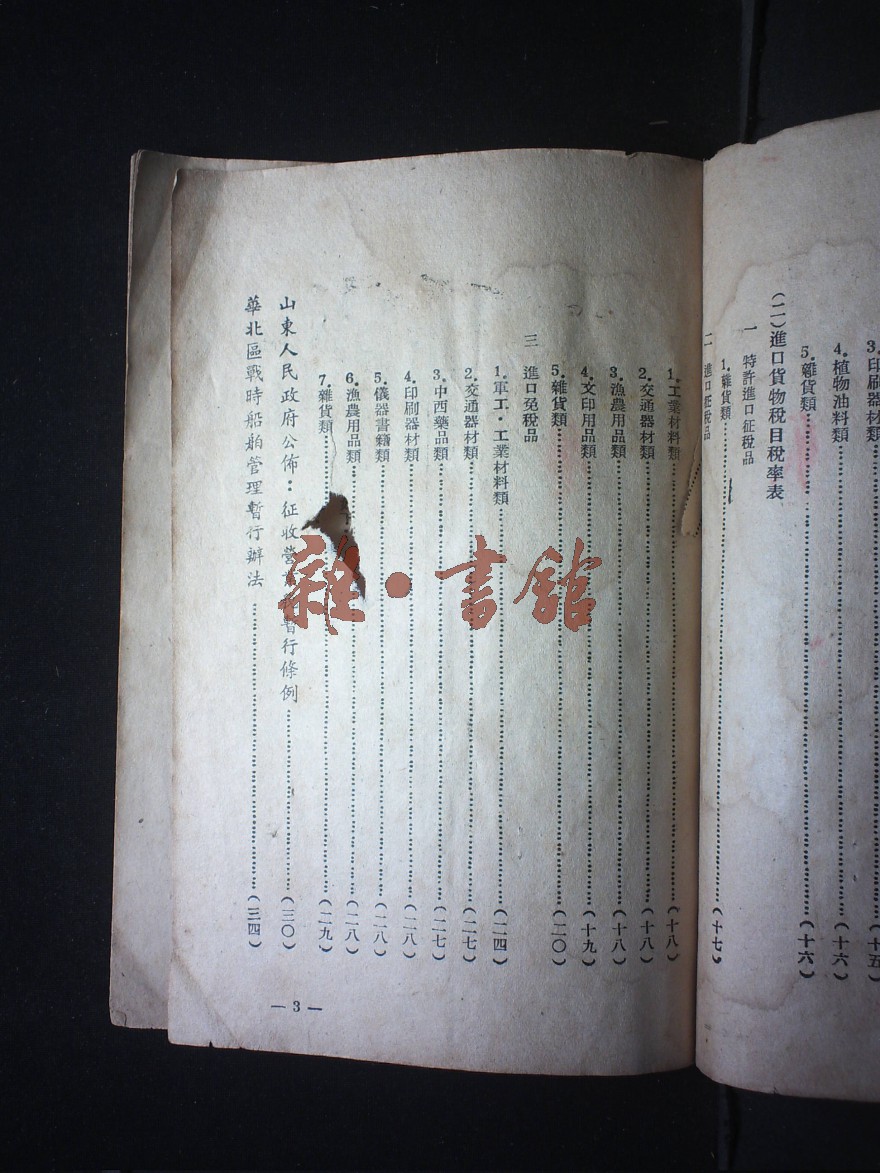 3.印刷器材類……(十五)
4.植物油料類……(十六)
5.雜貨類……(十六)
(二)進口貨物稅目稅率表
一 特許進口征稅品
1.雜貨類……(十七)
二 進口征稅品
1.工業材料類……(十八)
2.交通器材類……(十八)
3.漁農用品類……(十八)
4.文印用品類……(十九)
5.雜貨類……(二〇)
三 進口免稅品
1.軍工・工業材料類……(二四)
2.交通器材類……(二七)
3.中西藥品類……(二七)
4.印刷器材類……(二八)
5.儀器書籍類……(二八)
6.漁農用品類……(二八)
7.雜貨類……(二九)
山東人民政府公佈：征收營 暫行條例……(三〇)
華北區戰時船舶管理暫行辦法……(三四)
— 3 —
雜・書館